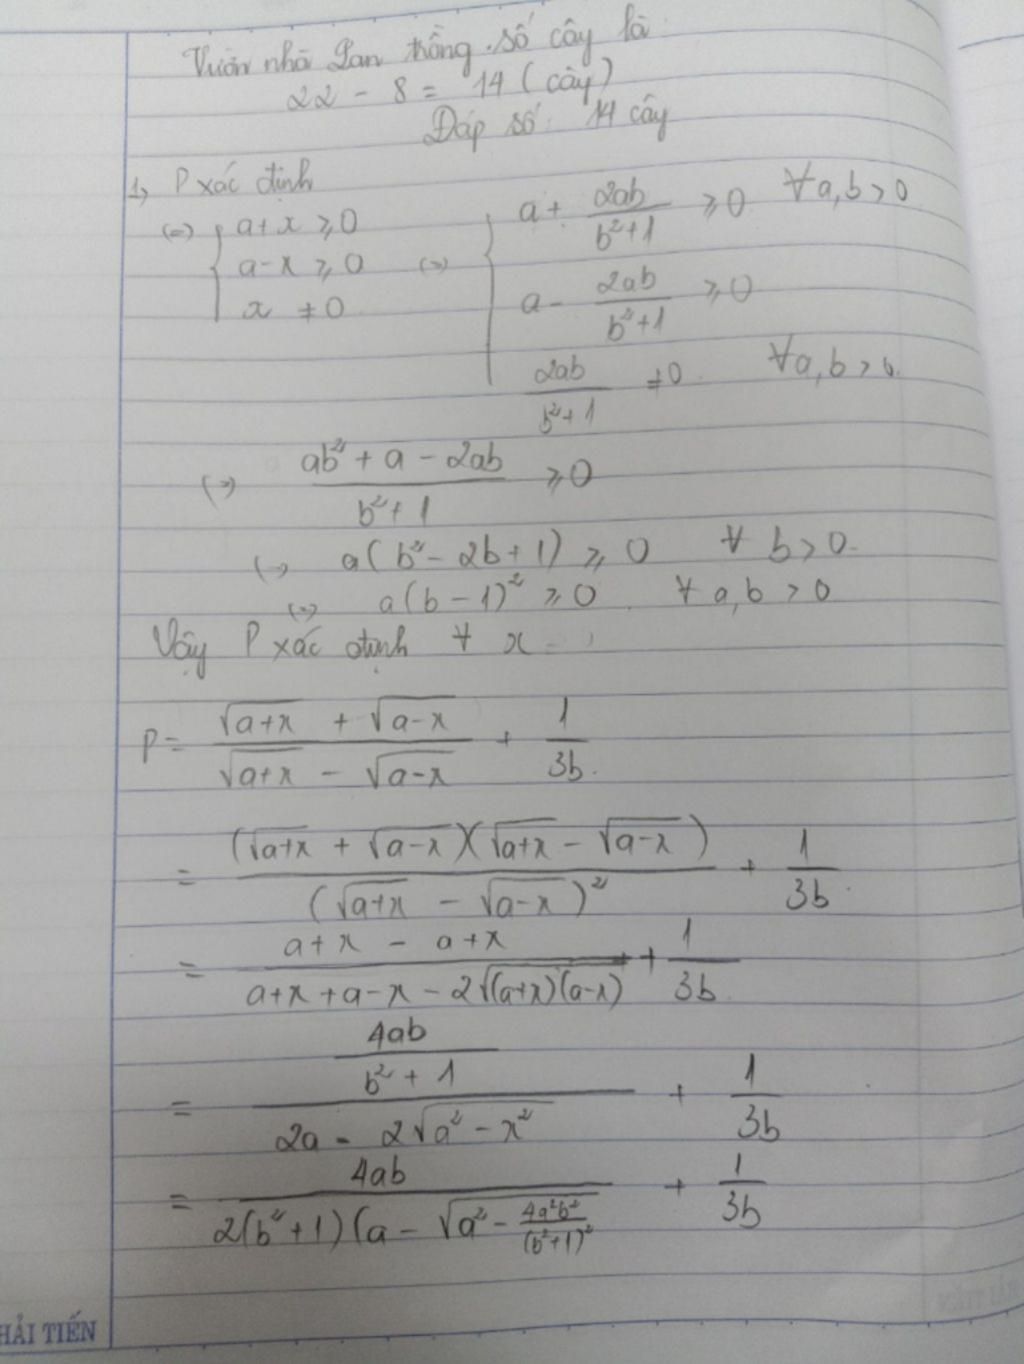 Vườn nhà Lan trồng số cây là
22 - 8 = 14 (cây)
Đáp số: 14 cây
1, P xác định
(=) { a+x ⩾ 0
a-x ⩾ 0
x ≠ 0
(=) { a + 2ab/(b²+1) ⩾ 0 ∀a,b > 0
a - 2ab/(b²+1) ⩾ 0
2ab/(b²+1) ≠ 0 ∀a,b > 0.
(=) (ab² + a - 2ab)/(b²+1) ⩾ 0
(=) a(b² - 2b + 1) ⩾ 0 ∀ b > 0.
(=) a(b - 1)² ⩾ 0 ∀ a,b > 0
Vậy P xác định ∀ x
P = (√(a+x) + √(a-x))/(√(a+x) - √(a-x)) + 1/3b.
= (√(a+x) + √(a-x))(√(a+x) - √(a-x))/(√(a+x) - √(a-x))² + 1/3b.
= (a+x - a+x)/(a+x+a-x-2√((a+x)(a-x))) + 1/3b.
= (4ab/(b²+1))/(2a - 2√(a²-x²)) + 1/3b
= 4ab/(2(b²+1)(a - √(a² - 4a²b²/(b²+1)²) + 1/3b
HẢI TIẾN